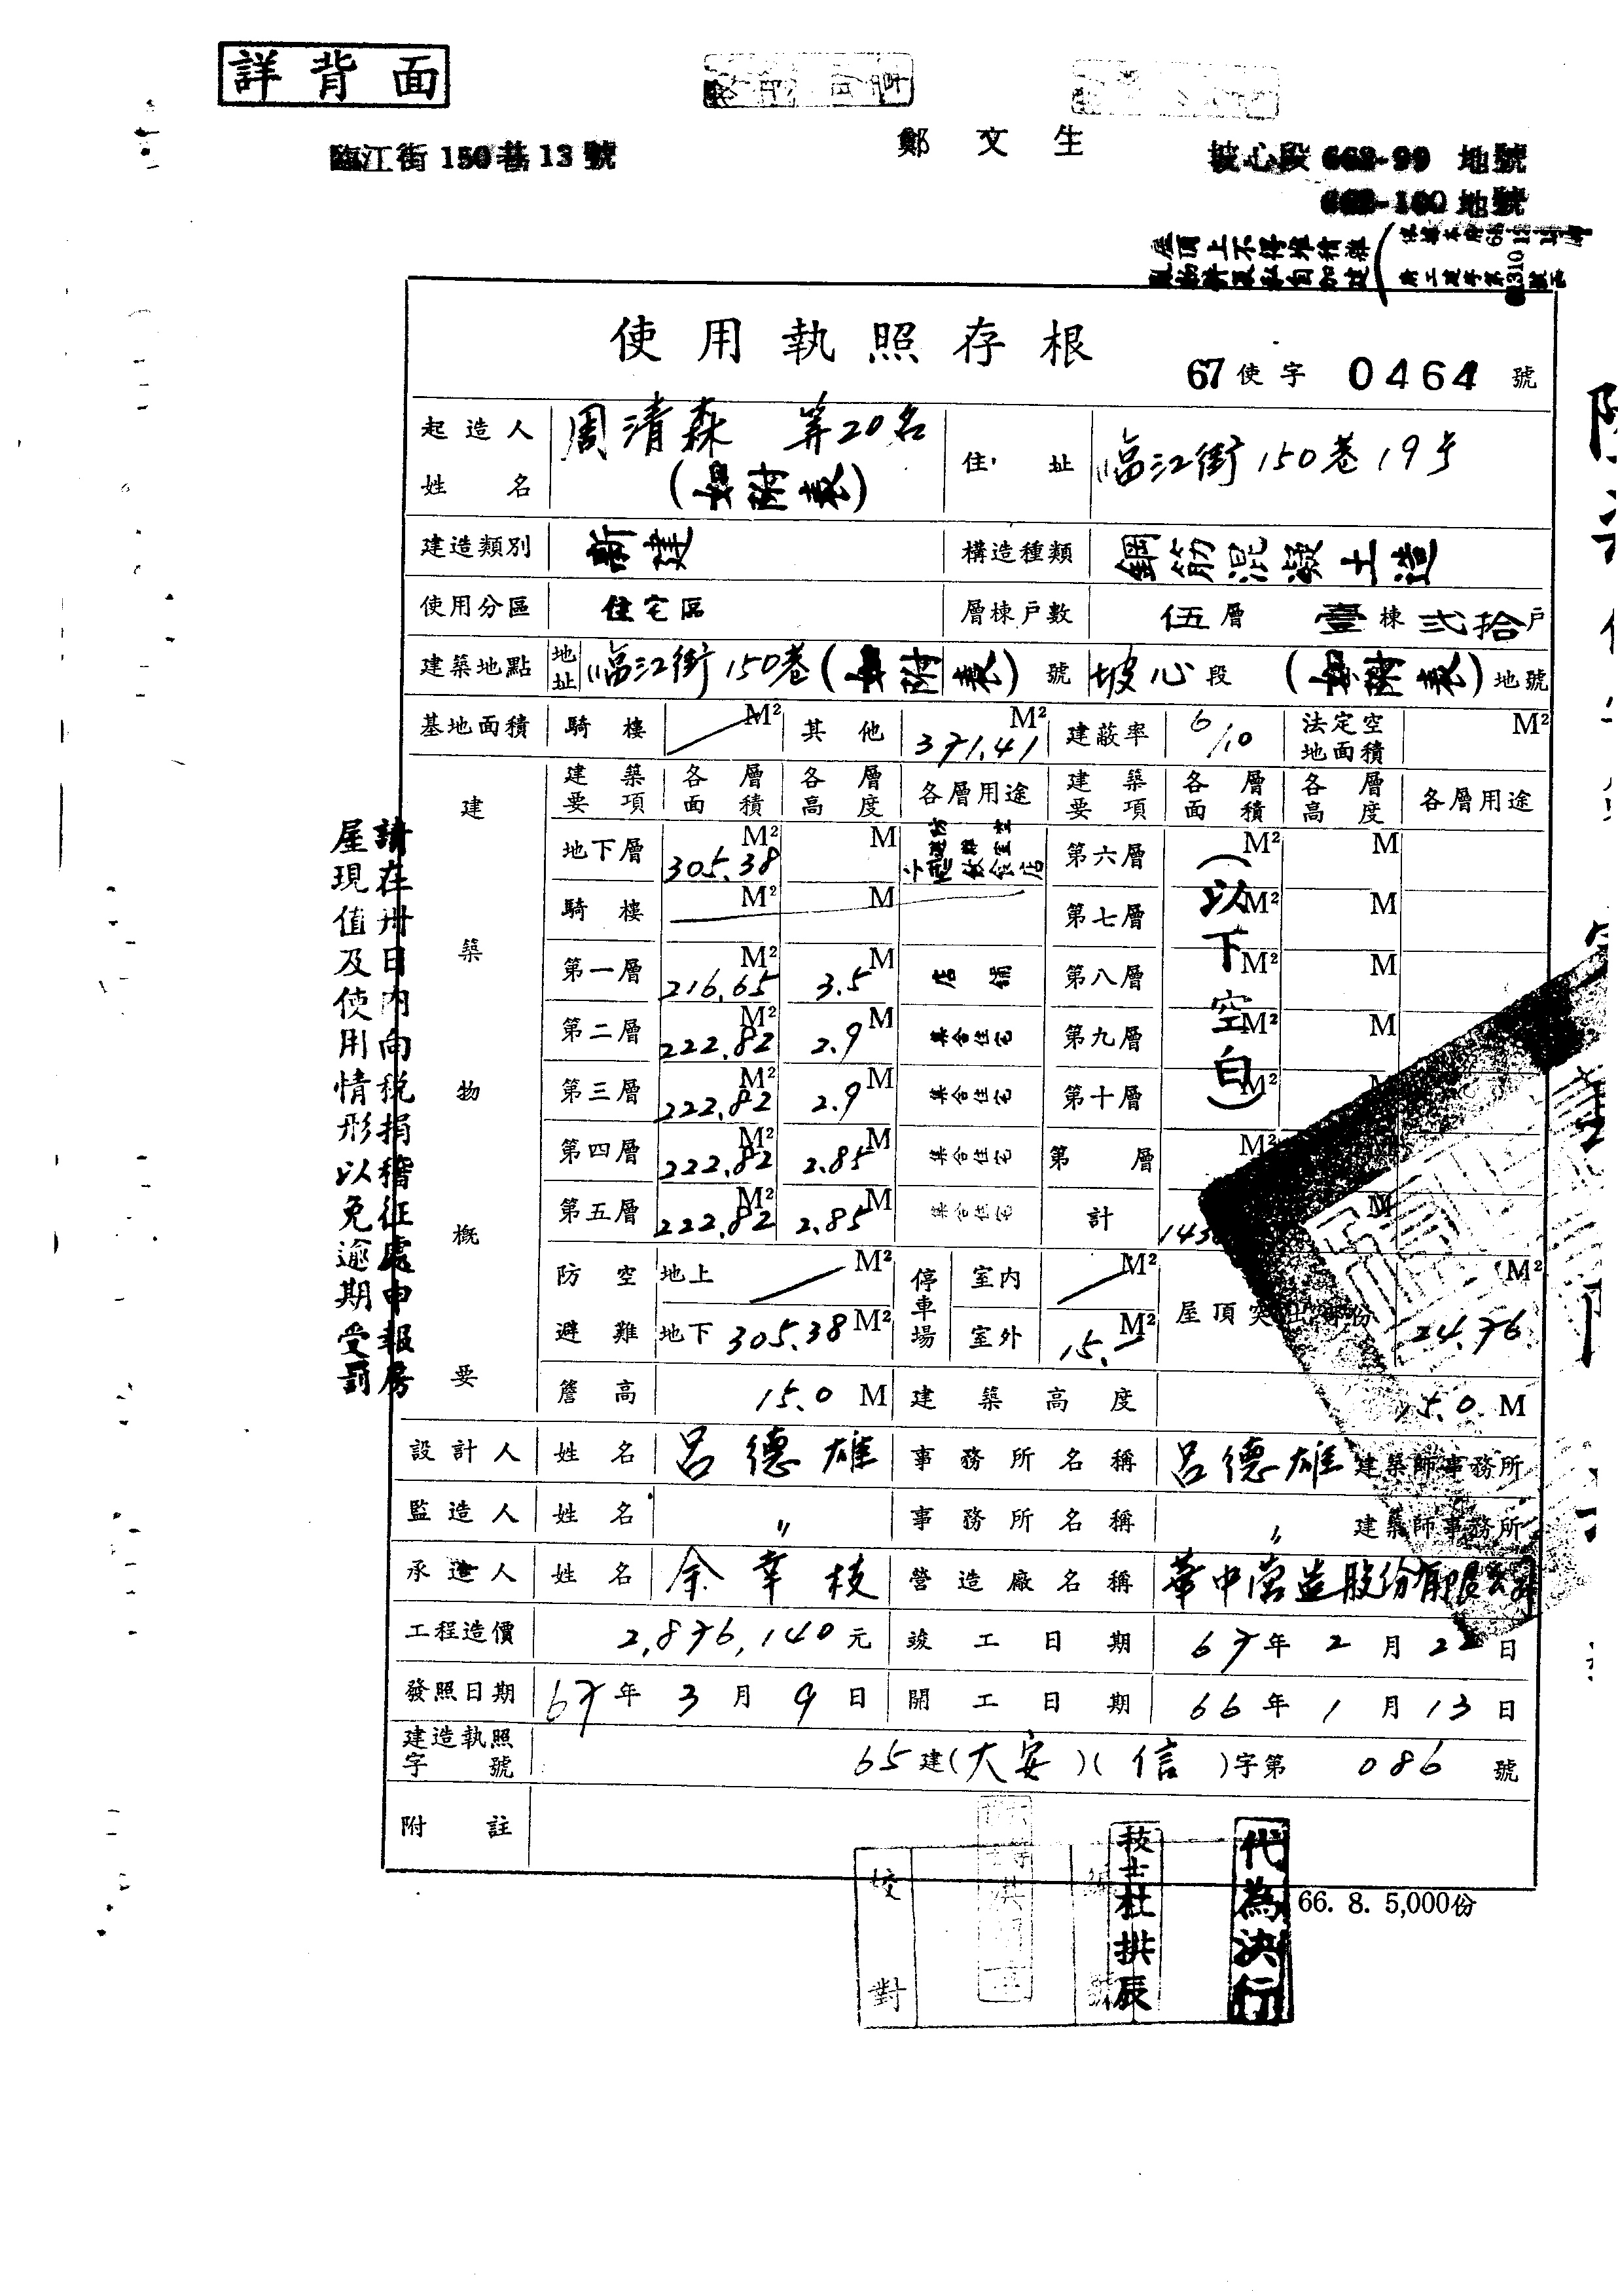 詳背面
臨江街150巷13號
鄭文生
坡心段 663-99 地號
663-100 地號
屋頂上不得堆積雜
亂物并及私自加建
使用執照存根
67使字 0464 號
起造人姓名 周清森 等20名 (如附表) 住址 臨江街150巷19号
建造類別 新建 構造種類 鋼筋混凝土造
使用分區 住宅區 層棟戶數 伍層 壹棟 弍拾戶
建築地點 地址 臨江街150巷(如附表)號 坡心段 (如附表)地號
基地面積 騎樓 M² 其他 371.41 M² 建蔽率 6/10 法定空地面積 M²
建築物概要
建築要項 各層面積 各層高度 各層用途 建築要項 各層面積 各層高度 各層用途
地下層 305.38 M² M 第六層 M² M
騎樓 M² M 第七層 M² M
第一層 216.65 M² 3.5 M 店舖 第八層 M² M
第二層 222.82 M² 2.9 M 集合住宅 第九層 M² M
第三層 222.82 M² 2.9 M 集合住宅 第十層 M² M
第四層 222.82 M² 2.85 M 集合住宅 第 層 M²
第五層 222.82 M² 2.85 M 集合住宅 計 M
(以下空白)
防空避難 地上 M² 停車場 室內 M² 屋頂突出部份 24.76 M²
地下 305.38 M² 室外 15.- M²
簷高 15.0 M 建築高度 15.0 M
設計人 姓名 呂德雄 事務所名稱 呂德雄 建築師事務所
監造人 姓名 〃 事務所名稱 〃 建築師事務所
承造人 姓名 余幸枝 營造廠名稱 華中營造股份有限公司
工程造價 2,876,140元 竣工日期 67年2月22日
發照日期 67年3月9日 開工日期 66年1月13日
建造執照字號 65建(大安)(信)字第 086 號
附註
請在卅日內向稅捐稽征處申報房
屋現值及使用情形以免逾期受罰
校對
技士杜拱辰
代為決行
66. 8. 5,000份